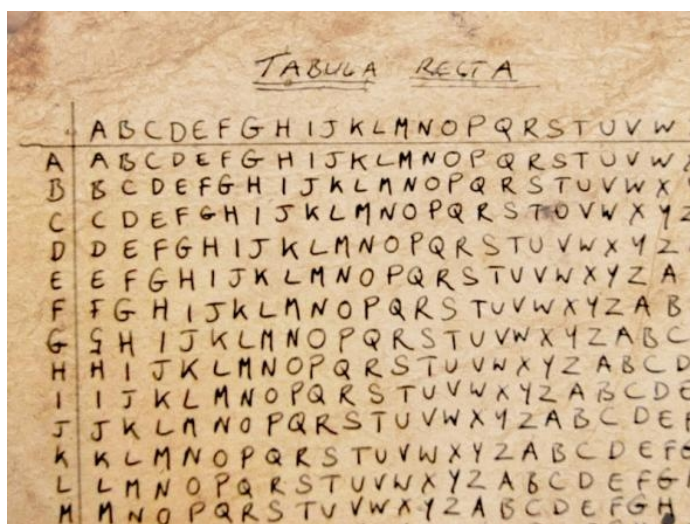 TABULA RECTA
A B C D E F G H I J K L M N O P Q R S T U V W
A A B C D E F G H I J K L M N O P Q R S T U V W X
B B C D E F G H I J K L M N O P Q R S T U V W X Y
C C D E F G H I J K L M N O P Q R S T U V W X Y Z
D D E F G H I J K L M N O P Q R S T U V W X Y Z
E E F G H I J K L M N O P Q R S T U V W X Y Z A
F F G H I J K L M N O P Q R S T U V W X Y Z A B
G G H I J K L M N O P Q R S T U V W X Y Z A B C
H H I J K L M N O P Q R S T U V W X Y Z A B C D
I I J K L M N O P Q R S T U V W X Y Z A B C D E
J J K L M N O P Q R S T U V W X Y Z A B C D E F
K K L M N O P Q R S T U V W X Y Z A B C D E F G
L L M N O P Q R S T U V W X Y Z A B C D E F G
M M N O P Q R S T U V W X Y Z A B C D E F G H